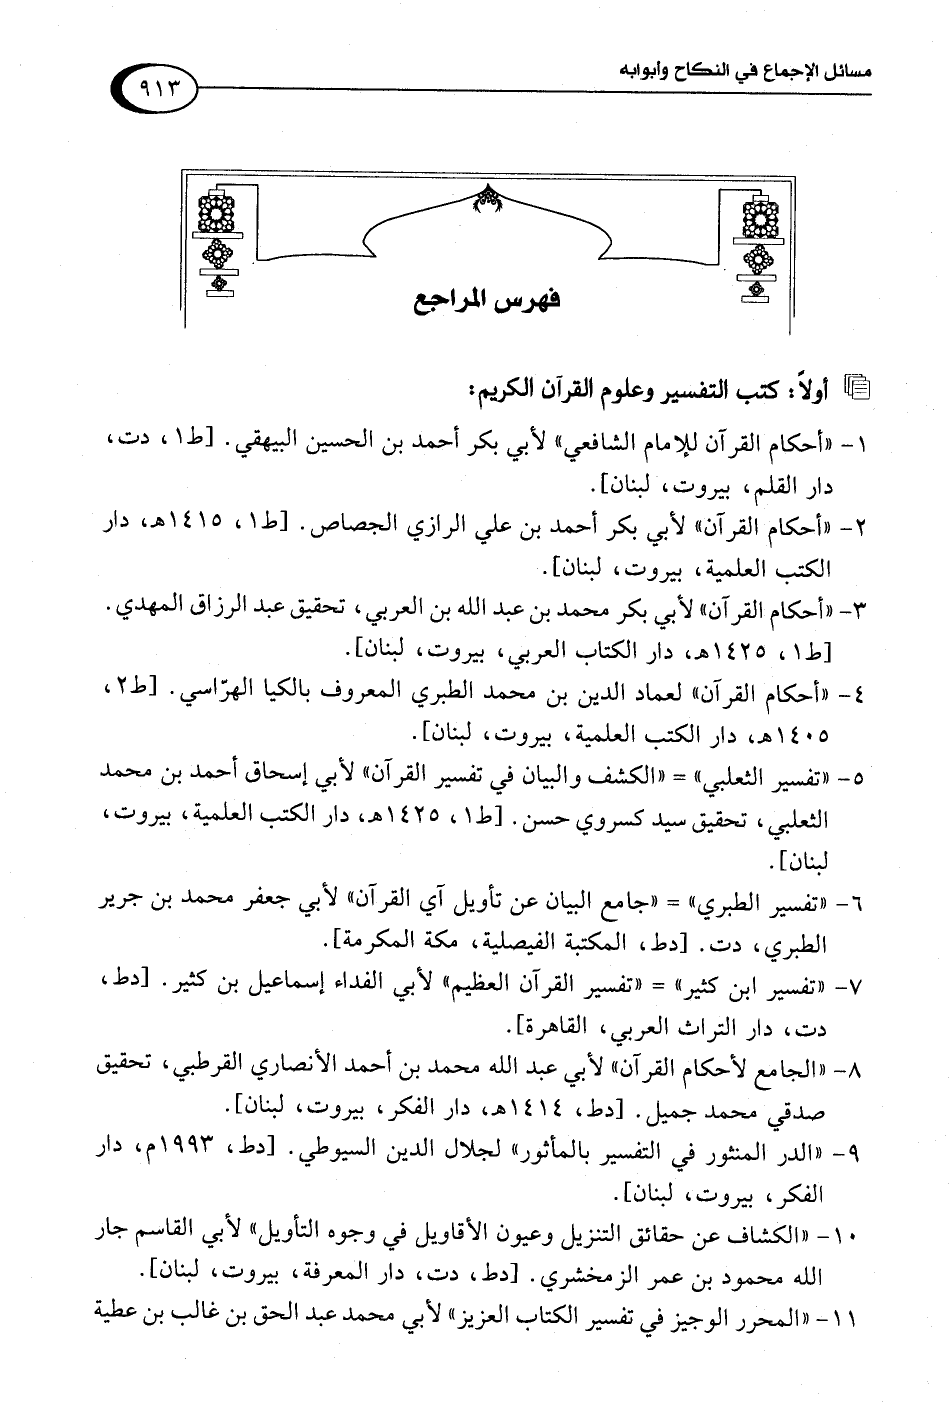 مسائل الإجماع في النكاح وأبوابه
٩١٣
فهرس المراجع
أولاً: كتب التفسير وعلوم القرآن الكريم:
١- «أحكام القرآن للإمام الشافعي» لأبي بكر أحمد بن الحسين البيهقي. [ط١، دت،
دار القلم، بيروت، لبنان].
٢- «أحكام القرآن» لأبي بكر أحمد بن علي الرازي الجصاص. [ط١، ١٤١٥هـ، دار
الكتب العلمية، بيروت، لبنان].
٣- «أحكام القرآن» لأبي بكر محمد بن عبد الله بن العربي، تحقيق عبد الرزاق المهدي.
[ط١، ١٤٢٥هـ، دار الكتاب العربي، بيروت، لبنان].
٤- «أحكام القرآن» لعماد الدين بن محمد الطبري المعروف بالكيا الهرّاسي. [ط٢،
١٤٠٥هـ، دار الكتب العلمية، بيروت، لبنان].
٥- «تفسير الثعلبي» = «الكشف والبيان في تفسير القرآن» لأبي إسحاق أحمد بن محمد
الثعلبي، تحقيق سيد كسروي حسن. [ط١، ١٤٢٥هـ، دار الكتب العلمية، بيروت،
لبنان].
٦- «تفسير الطبري» = «جامع البيان عن تأويل آي القرآن» لأبي جعفر محمد بن جرير
الطبري، دت. [دط، المكتبة الفيصلية، مكة المكرمة].
٧- «تفسير ابن كثير» = «تفسير القرآن العظيم» لأبي الفداء إسماعيل بن كثير. [دط،
دت، دار التراث العربي، القاهرة].
٨- «الجامع لأحكام القرآن» لأبي عبد الله محمد بن أحمد الأنصاري القرطبي، تحقيق
صدقي محمد جميل. [دط، ١٤١٤هـ، دار الفكر، بيروت، لبنان].
٩- «الدر المنثور في التفسير بالمأثور» لجلال الدين السيوطي. [دط، ١٩٩٣م، دار
الفكر، بيروت، لبنان].
١٠- «الكشاف عن حقائق التنزيل وعيون الأقاويل في وجوه التأويل» لأبي القاسم جار
الله محمود بن عمر الزمخشري. [دط، دت، دار المعرفة، بيروت، لبنان].
١١- «المحرر الوجيز في تفسير الكتاب العزيز» لأبي محمد عبد الحق بن غالب بن عطية